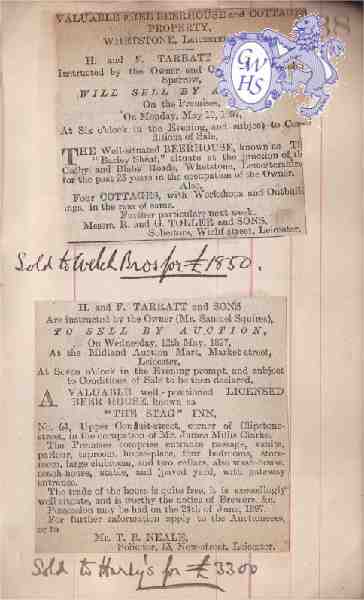 VALUABLE FREE BEERHOUSE and COTTAGE
PROPERTY,
WHETSTONE, Leicester
38
GWHS
H. and F. TARRATT
Instructed by the Owner and
Sparrow,
WILL SELL BY A
On the Premises,
On Monday, May 1897,
At Six o'clock in the Evening, and subject to Con-
ditions of Sale.
THE Well-situated BEERHOUSE, known as Th
"Barley Sheaf," situate at the junction of th
Cosby and Blaby Roads, Whetstone, Leicestershire
for the past 23 years in the occupation of the Owner.
Also,
Four COTTAGES, with Workshops and Outbuild
ings, in the rear of same.
Further particulars next week.
Messrs. R. and G. TOLLER and SONS,
Solicitors, Wickf street, Leicester.
Sold to Welch Bros for £1850.
H. and F. TARRATT and SONS
Are instructed by the Owner (Mr. Samuel Squires),
TO SELL BY AUCTION,
On Wednesday, 12th May, 1897,
At the Midland Auction Mart, Market street,
Leicester,
At Seven o'clock in the Evening prompt, and subject
to Conditions of Sale to be then declared,
A VALUABLE well-positioned LICENSED
BEER HOUSE, known as
"THE STAG" INN,
No. 64, Upper Conduit-street, corner of Clipstone-
street, in the occupation of Mr. James Mills Clarke.
The Premises comprise entrance passage, vaults,
parlour, taproom, house-place, four bedrooms, store-
room, large clubroom, and two cellars, also wash-house,
coach-house, stable, and paved yard, with gateway
entrance.
The trade of the house is quite free, it is exceedingly
well situate, and is worthy the notice of Brewers, &c.
Possession may be had on the 24th of June, 1897.
For further information apply to the Auctioneers,
or to
Mr. T. B. NEALE,
Solicitor, 13, New-street, Leicester.
Sold to Hurley's for £3300